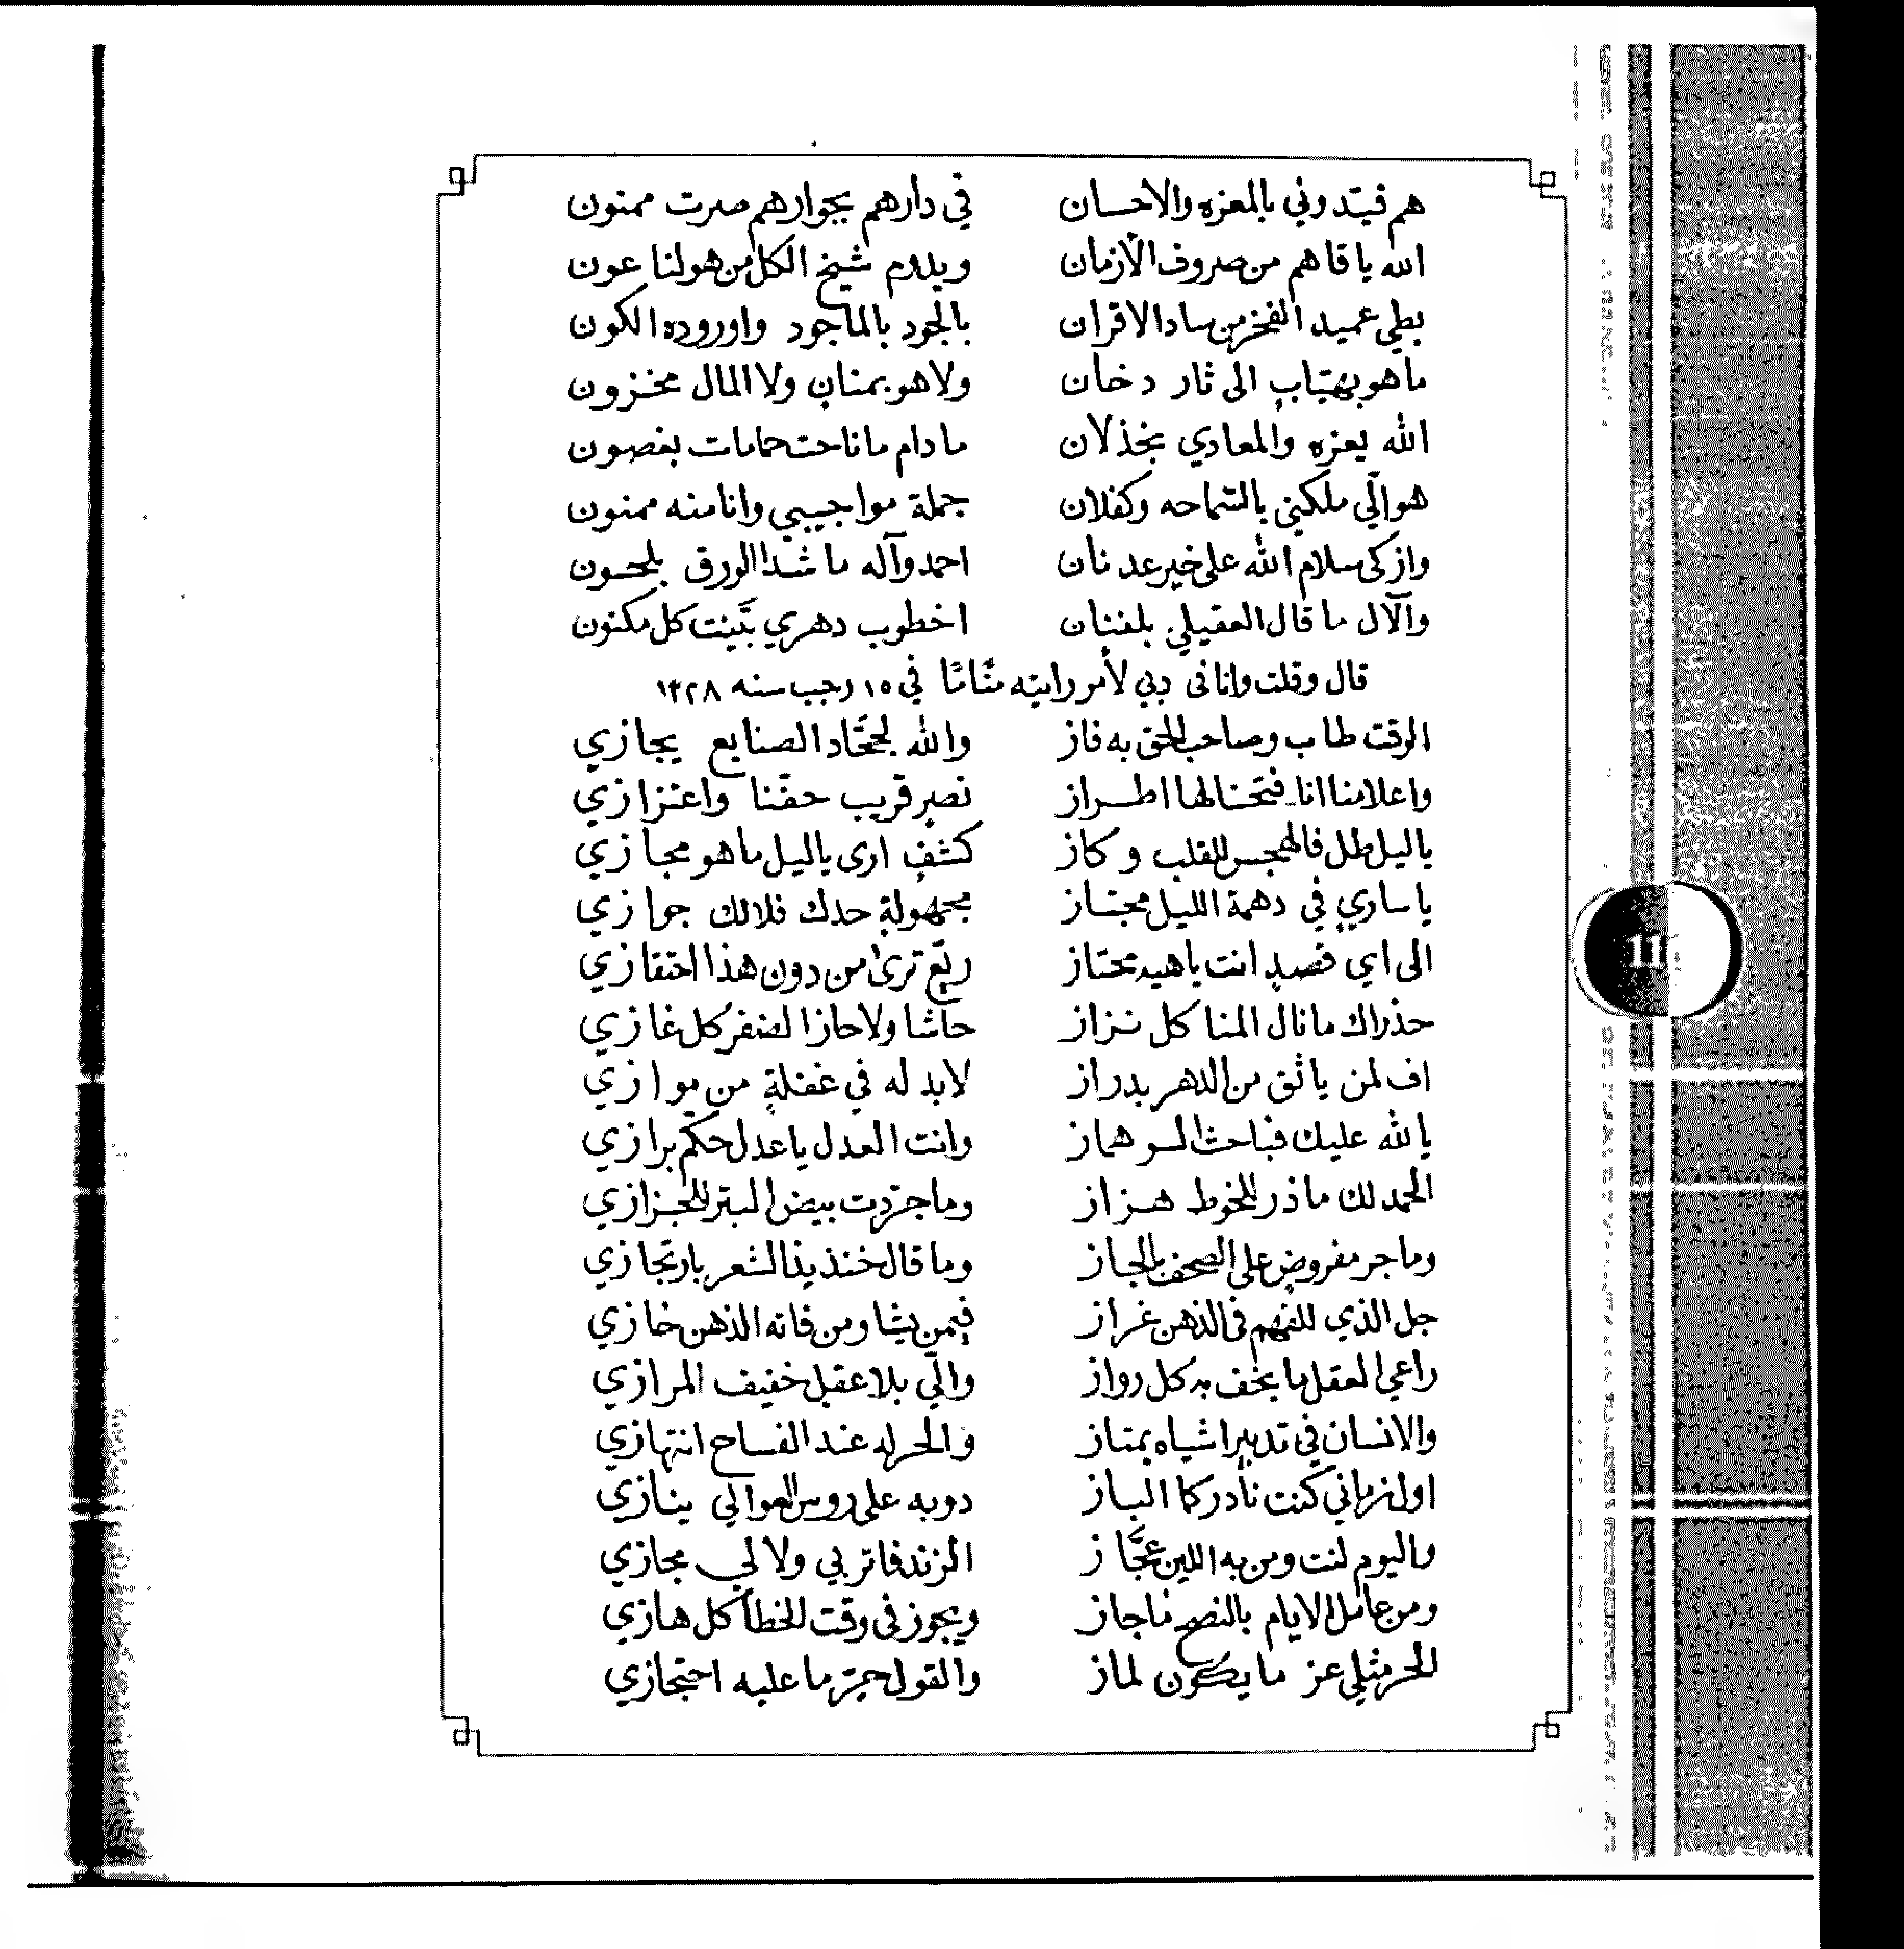 هم قيّدوني بالمعزه والاحسان في دارهم بجوارهم صرت ممنون
الله ياقاهم من صروف الأزمان ويدوم شيخ الكل من هولنا عون
بطي عميد الفخر من ساد الاقران بالجود بالماجود واوروده الكون
ماهو بهيّاب الى ثار دخان ولاهو بمنانٍ ولا المال مخزون
الله يعزه والمعادي بخذلان مادام ما ناحت حمامات بغصون
هو الّي ملكني بالسّماحه وكفلان جملة مواجيبي وانا منه ممنون
وازكى سلام الله على خير عدنان احمد وآله ما شدا الورق بلحون
والآل ما قال العقيلي بلفنان اخطوب دهري بيّنت كل مكنون
قال وقلت وانا في دبي لأمر رايته منّامًا في ١٥ رجب سنه ١٣٢٨
الوقت طاب وصاحب الحق به فاز والله لجحّاد الصنايع يجازي
واعلامنا انا فتحنا لها اطراز نصرٍ قريب حقنا واعتزازي
ياليل طل فالهجس للقلب وكاز كشفٍ ارى ياليل ماهو مجازي
ياساريٍ في دهمة الليل مجتاز مجهولةٍ حدك فلالك جوازي
الى اي قصدٍ انت ياهيه محتاز ريّع ترى من دون هذا احتفازي
حذراك ما نال المنا كل نزاز حاشا ولا حاز الضفر كل غازي
اف لمن ياثق من الدهر بدراز لابد له في غفلةٍ من موازي
يالله عليك فباحث السو هماز وانت العدل ياعدل حكم برازي
الحمد لك ما ذر للخوط هزاز وما جرّدت بيض البتر للجزازي
وما جر مفروضٍ على الصحف بالجاز وما قال خنذيذ الشعر بارتجازي
جل الذي للفهم في الذهن غراز فيمن يشا ومن فاته الذهن خازي
راعي العقل ما يخف به كل رواز والّي بلا عقل خفيف المرازي
والانسان في تدبير اشياه يمتاز والحر له عند الفساح انتهازي
اول زماني كنت نادر كما الباز دوبه على روس العوالي ينازي
واليوم لنت ومن به اللين عجّاز الزند فاتر بي ولا لي مجازي
ومن عامل الايام بالنصح ماجاز ويجوز في وقت الخطا كل هازي
الحر مثلي عز ما يكون لماز والقول حبرٍ ما عليه احتجازي
11